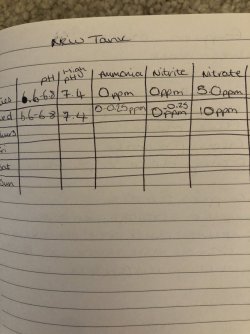 New Tank
pH High pH Ammonia Nitrite Nitrate
ues 6.6-6.8 7.4 0ppm 0ppm 5.0ppm
ed 6.6-6.8 7.4 0-0.25ppm 0-0.25ppm 10ppm
hurs
ri
at
Sun